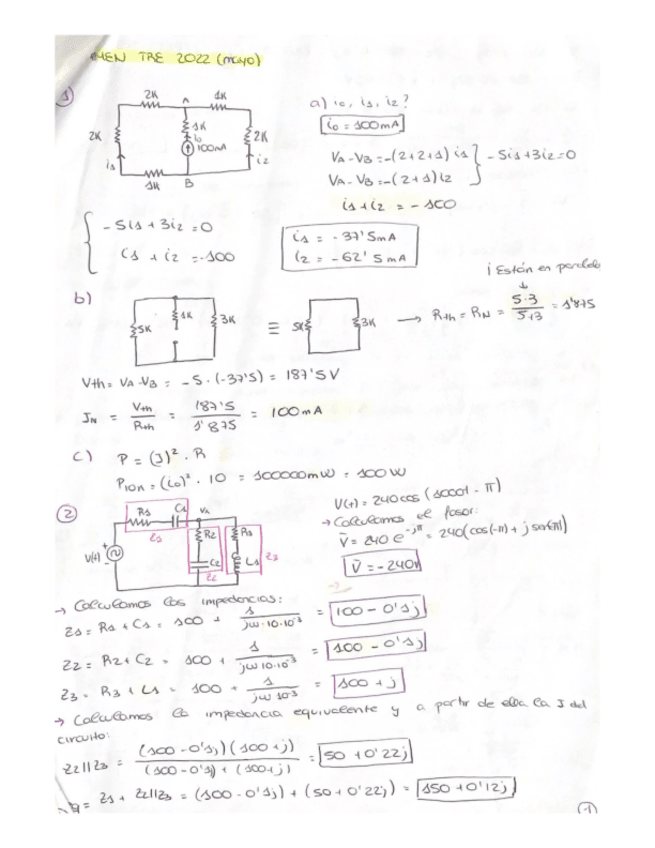 EXAMEN TRE 2022 (mayo)
1
2K A 1K
2K 1K i0 100mA 2K
i1 i2
1K B
a) i0, i1, i2?
i0 = 100mA
VA - VB = -(2+2+1) i1
VA - VB = -(2+1) i2
-5i1 + 3i2 = 0
i1 + i2 = -100
-5i1 + 3i2 = 0
i1 + i2 = -100
i1 = -37'5mA
i2 = -62'5mA
¡Están en paralelo
b)
5K 1K 3K ≡ 5K 3K → Rth = RN = 5·3 / 5+3 = 1'875
Vth = VA - VB = -5·(-37'5) = 187'5V
JN = Vth / Rth = 187'5 / 1'875 = 100mA
c) P = (J)² · R
P10K = (i0)² · 10 = 100000mW = 100W
2
R1 C1 VA
Z1 R2 R3
V(t) C2 L1 Z3
Z2
V(t) = 240cos(1000t - π)
→ Calculamos el fasor:
V = 240 e^-jπ = 240(cos(-π) + j sen(-π))
V = -240V
→ Calculamos las impedancias:
Z1 = R1 + C1 = 100 + 1 / jω·10·10^-3 = 100 - 0'1j
Z2 = R2 + C2 = 100 + 1 / jω 10·10^-3 = 100 - 0'1j
Z3 = R3 + L1 = 100 + 1 / jω 10^-3 = 100 + j
→ Calculamos la impedancia equivalente y a partir de ella la J del
circuito:
Z2||Z3 = (100 - 0'1j)(100 + j) / (100 - 0'1j) + (100 + j) = 50 + 0'22j
= Z1 + Z2||Z3 = (100 - 0'1j) + (50 + 0'22j) = 150 + 0'12j
1